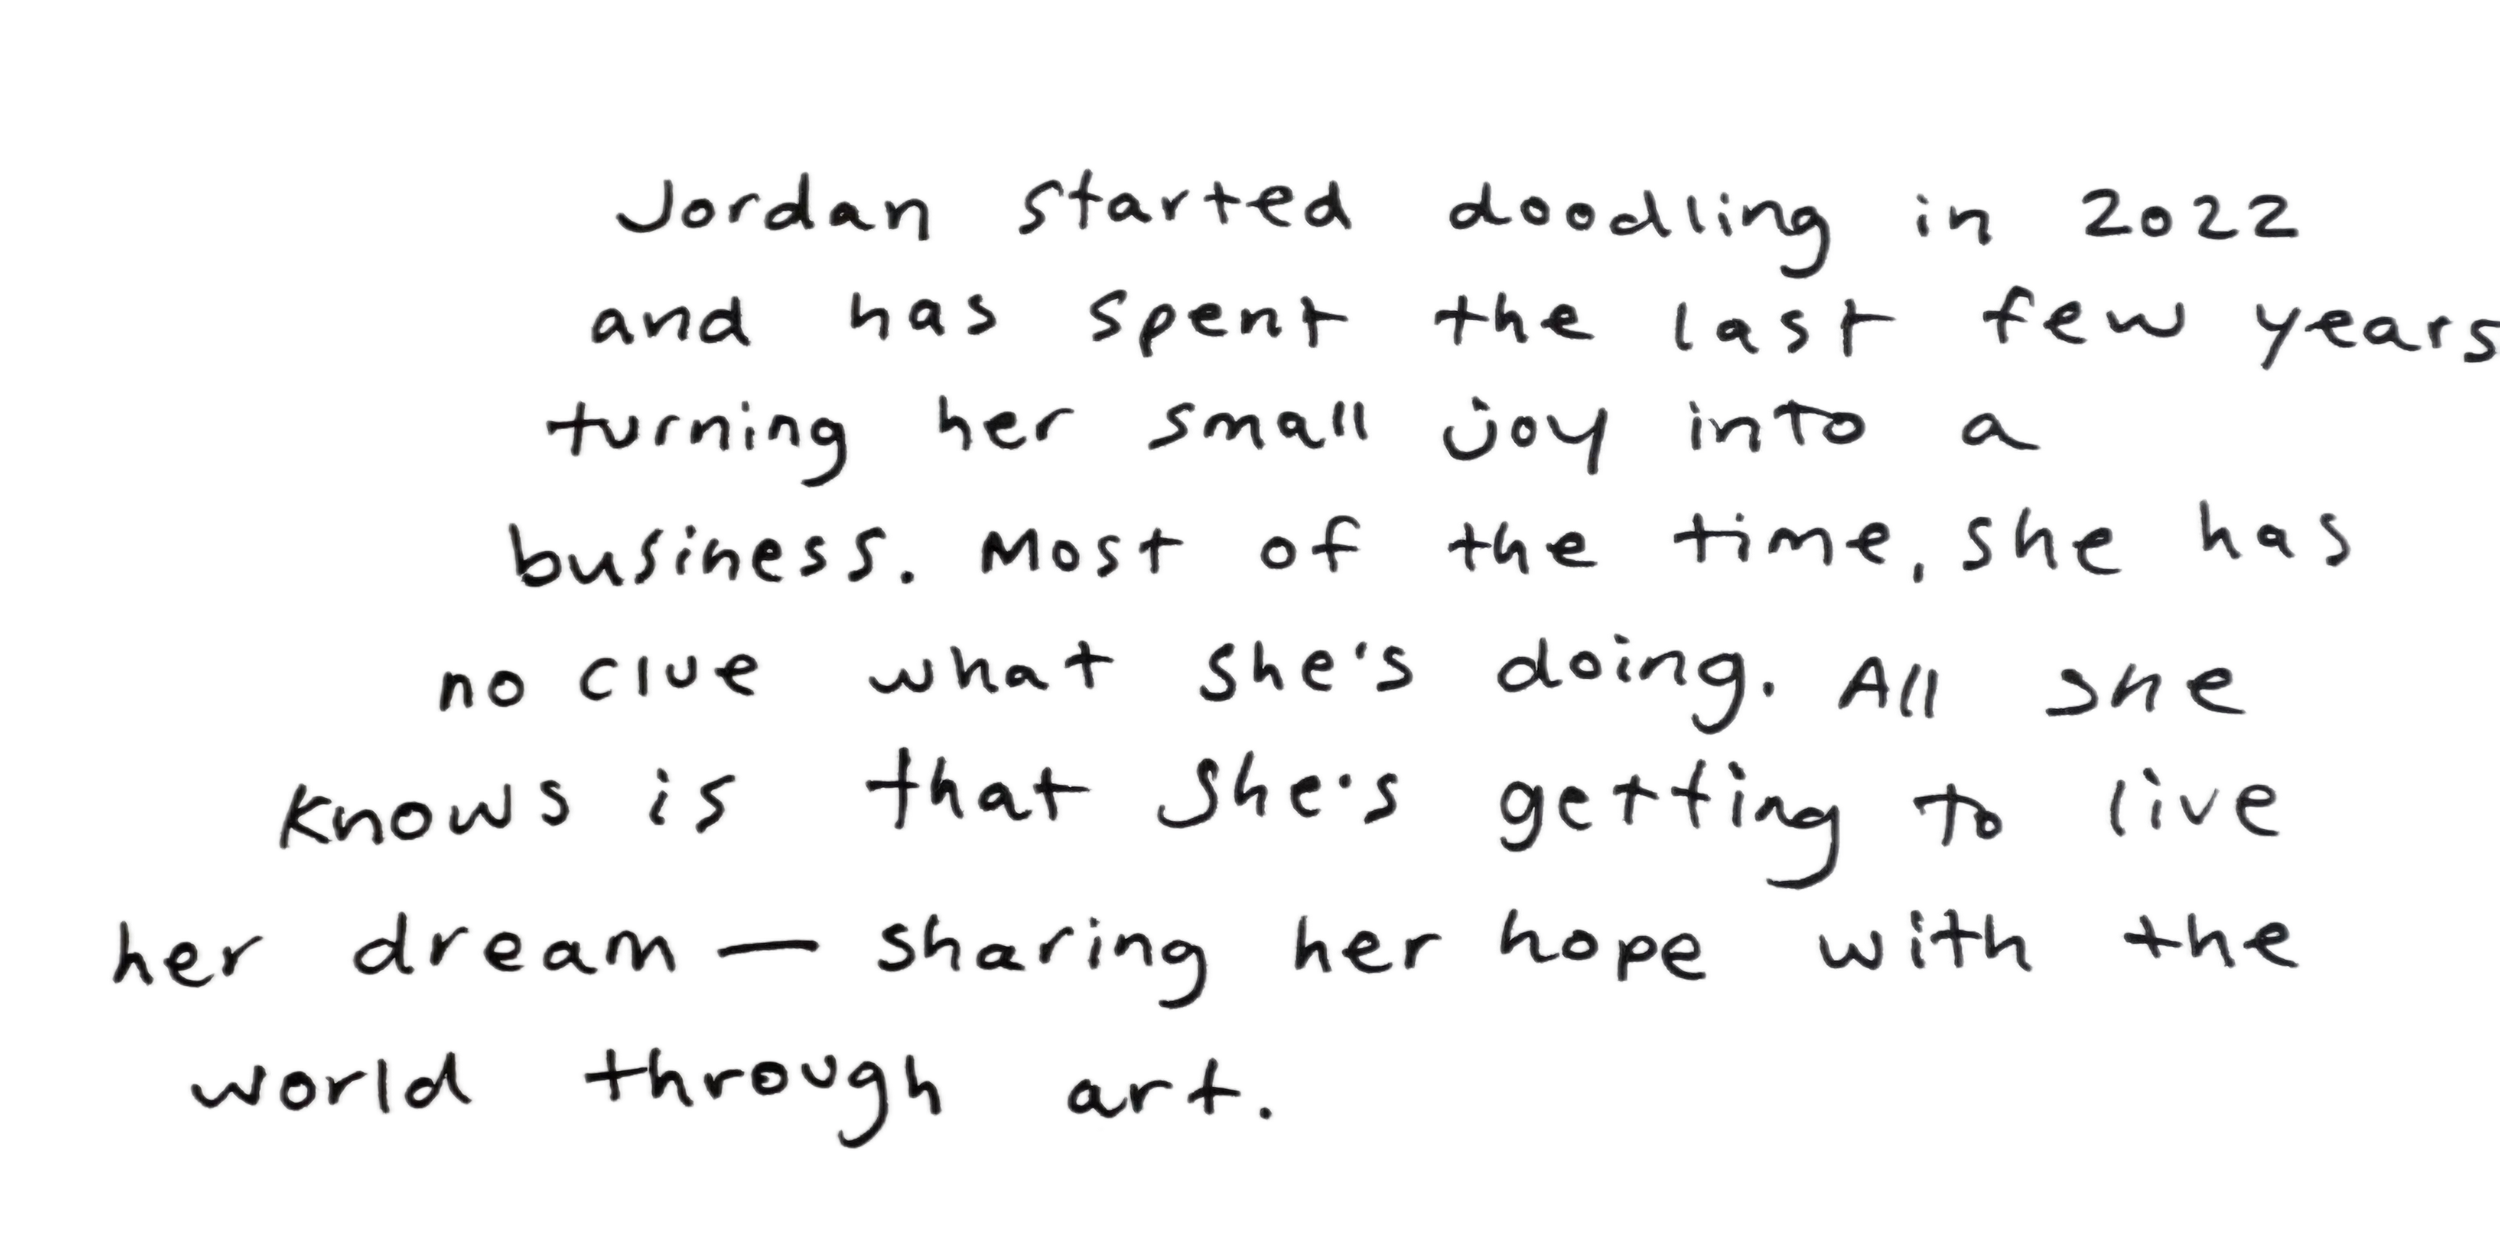 Jordan started doodling in 2022
and has spent the last few years
turning her small joy into a
business. Most of the time, she has
no clue what she's doing. All she
knows is that she's getting to live
her dream — sharing her hope with the
world through art.